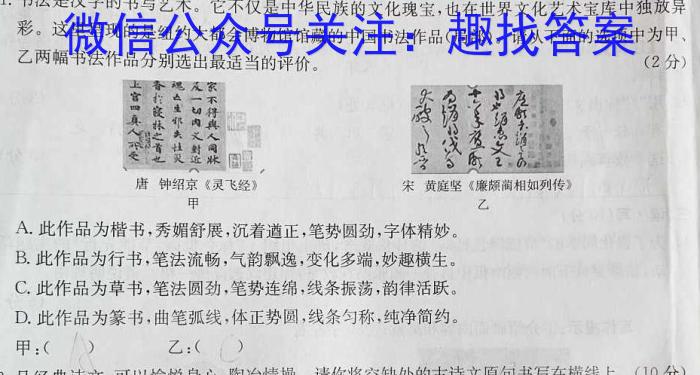 书法是汉字的书写艺术。它不仅是中华民族的文化瑰宝,也在世界文化艺术宝库中独放异
彩。这里呈现的是纽约大都会博物馆馆藏的中国书法作品(局部),请从下面的选项中为甲、
微信公众号关注:趣找答案
乙两幅书法作品分别选出最适当的评价。 (2分)
唐 钟绍京《灵飞经》
甲
宋 黄庭坚《廉颇蔺相如列传》
乙
A. 此作品为楷书,秀媚舒展,沉着遒正,笔势圆劲,字体精妙。
B. 此作品为行书,笔法流畅,气韵飘逸,变化多端,妙趣横生。
C. 此作品为草书,笔法圆劲,笔势连绵,线条振荡,韵律活跃。
D. 此作品为篆书,曲笔弧线,体正势圆,线条匀称,纯净简约。
甲:( A ) 乙:( C )